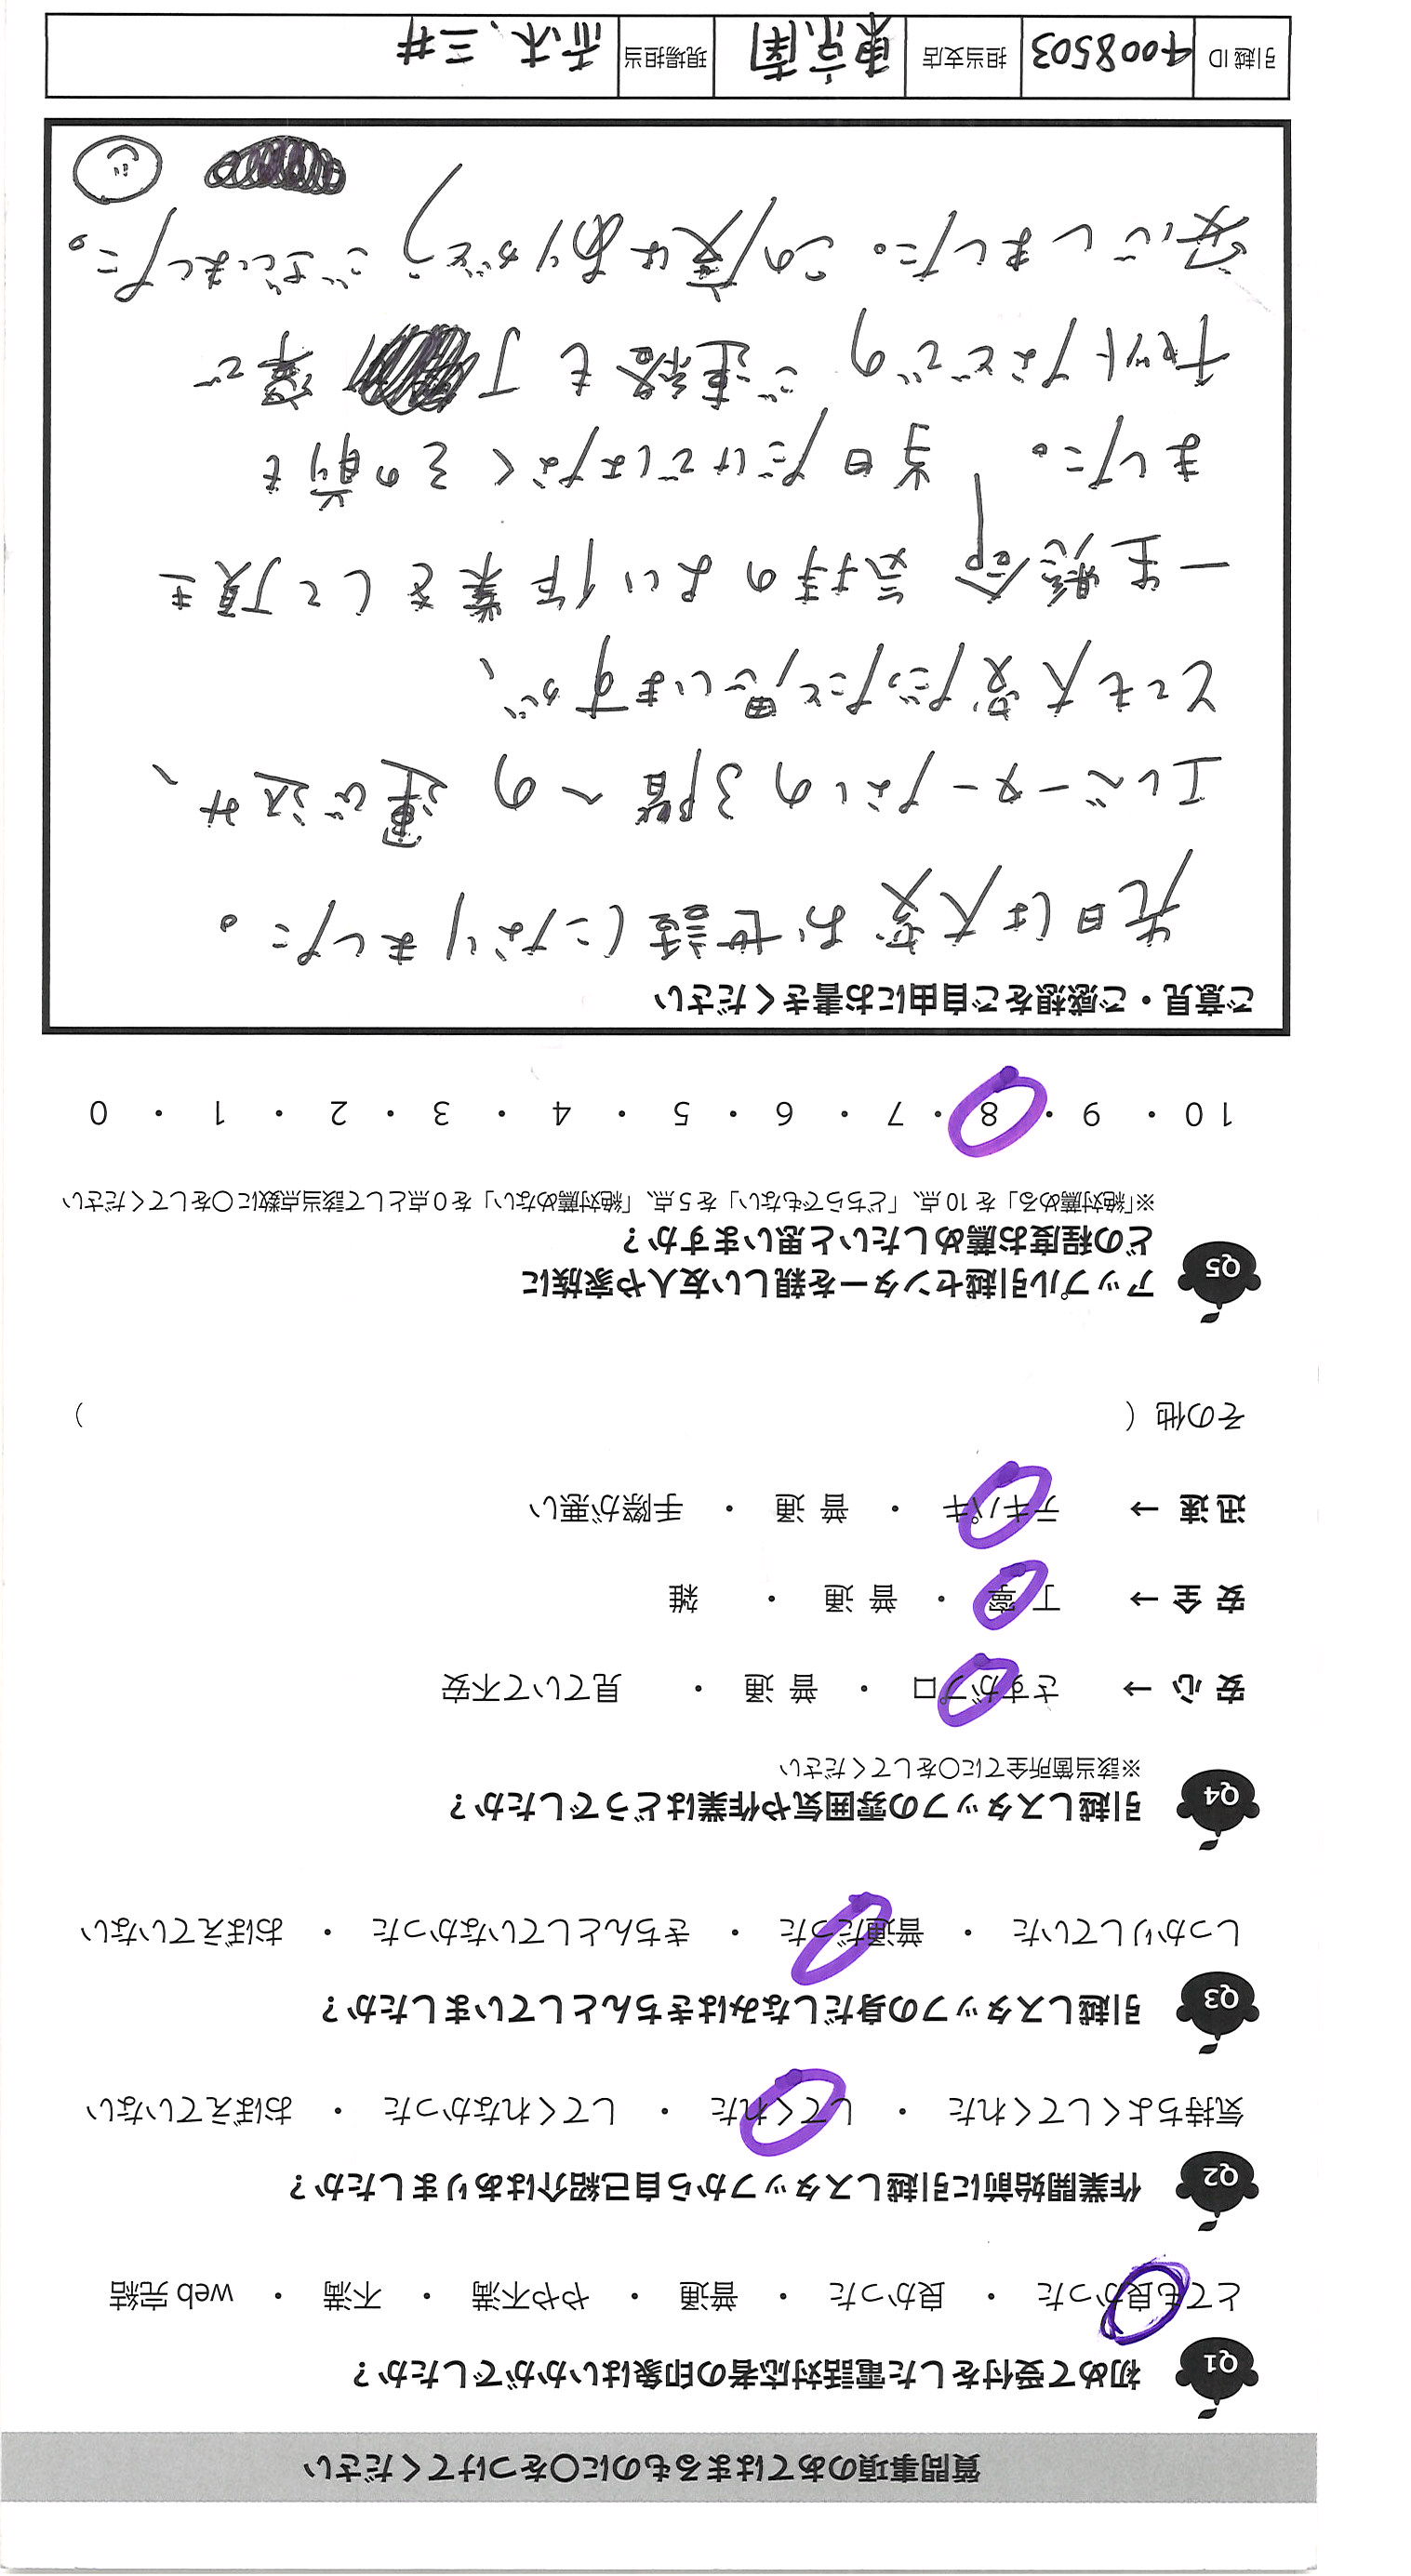 質問事項のあてはまるものに○をつけてください
Q1 初めて受付をした電話対応者の印象はいかがでしたか？
とても良かった ・ 良かった ・ 普通 ・ やや不満 ・ 不満 ・ web 完結
Q2 作業開始前に引越しスタッフから自己紹介はありましたか？
気持ちよくしてくれた ・ してくれた ・ してくれなかった ・ おぼえていない
Q3 引越しスタッフの身だしなみはきちんとしていましたか？
しっかりしていた ・ 普通だった ・ きちんとしていなかった ・ おぼえていない
Q4 引越しスタッフの雰囲気や作業はどうでしたか？
※該当箇所全てに○をしてください
安 心 → さすがプロ ・ 普 通 ・ 見ていて不安
安 全 → 丁 寧 ・ 普 通 ・ 雑
迅 速 → テキパキ ・ 普 通 ・ 手際が悪い
その他（ ）
Q5 アップル引越センターを親しい友人や家族に
どの程度お薦めしたいと思いますか？
※「絶対薦める」を 10 点、「どちらでもない」を 5 点、「絶対薦めない」を 0 点として該当点数に○をしてください
10 ・ 9 ・ 8 ・ 7 ・ 6 ・ 5 ・ 4 ・ 3 ・ 2 ・ 1 ・ 0
ご意見・ご感想をご自由にお書きください
先日は大変お世話になりました。
エレベーターなしの3階への運び込み、
とても大変だったと思いますが、
一生懸命気持のよい作業をして頂き
ました。当日だけではなくその前も
チャットなどでのご連絡も丁寧で
安心しました。この度はありがとうございました。
引越 ID 4008503 担当支店 東京南 現場担当 赤木、三井